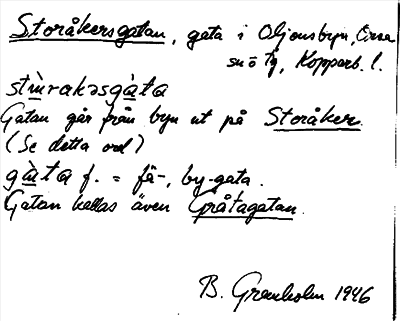 Storåkersgatan, gata i Oljonsbyn, Orsa
sn ö tg, Kopparb. l.
stùrakəsgàta
Gatan går från byn ut på Storåker
(Se detta ord)
gàta f. = fä-, by-gata.
Gatan kallas även Gråtagatan.
B. Grenholm 1946